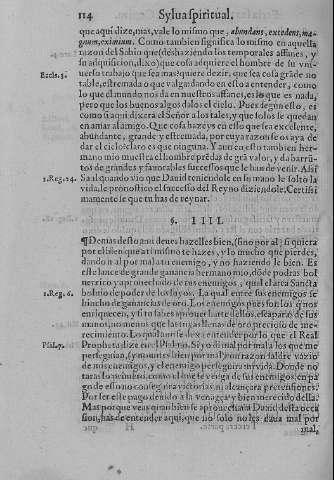 114 Sylua spiritual.
que aqui dize, mas, vale lo mismo que, abundans, excedens, ma-
gnum, eximium. Como tambien significa lo mismo en aquella
razon del Sabio que (deshaziendo los temporales affanes, y
su adquisicion, dixo) que cosa adquiere el hombre de su vni-
Eccls. 3. uerso trabajo que sea mas? quiere dezir, que sea cosa grãde no
table, estremada o que valga dando en esto a entender, como
lo que el mundo nos da en nuestros affanes, es lo que es nada,
pero que los buenos algos dalos el cielo. Pues segun esto, es
como si aqui dixera el Señor a los tales, y que solos se quedan
en amiar al amigo. Que cosa hazeys en esto que sea excelente,
abundante, grande y estremada, por cuya razon se os aya de
dar el cielo? claro es que ninguna. Y aun en esto tambien her-
mano mio muestra el hombre prẽdas de grã valor, y da barrũ-
tos de grandes y fauorables successos que le han de venir. Assi
1. Reg. 24. Saul quando vio que Dauid teniendole en su mano le solto la
vida, le pronostico el successo del Reyno diziendole, Certissi
mamente se que tu has de reynar.
§. IIII.
¶ Demas desto aun deues hazelles bien, (sino por al) si quiera
por el bien que a ti mismo te hazes, y lo mucho que pierdes,
dando mal por mal a tu enemigo, y no haziendole bien. Es
este lance de grande ganancia hermano mio, dõde podras bol
1. Reg. 6. uer rico y aprouechado de tus enemigos, qual el arca Sancta
boluio de poder de los suyos. La qual entre sus enemigos se
hincho de ganancias de oro. Los enemigos pues son los que nos
enriquecen, y si tu sabes aprouecharte dellos, escaparte de sus
manos, no menos que las tuyas llenas de oro precioso de me-
recimiento. Lo qual parece dexo entender por lo que el Real
Psal. 7. Propheta dize en el Psalmo. Si yo di mal por mal a los que me
perseguian, (y no antes bien por mal) con razon saldre vazio
de mis enemigos, y el enemigo perseguira mi vida. Donde no
taras lo primero, como el que se venga de sus enemigos, en pa
go de esso no conseguira victorias, ni alcançara pretensiones.
Por ser este pago deuido a la vengança y bien merecido della.
Mas porque veays quan bien se aprouechaua Dauid desta occa
sion, has de entender aqui, que no solo no les daua mal por
mal,